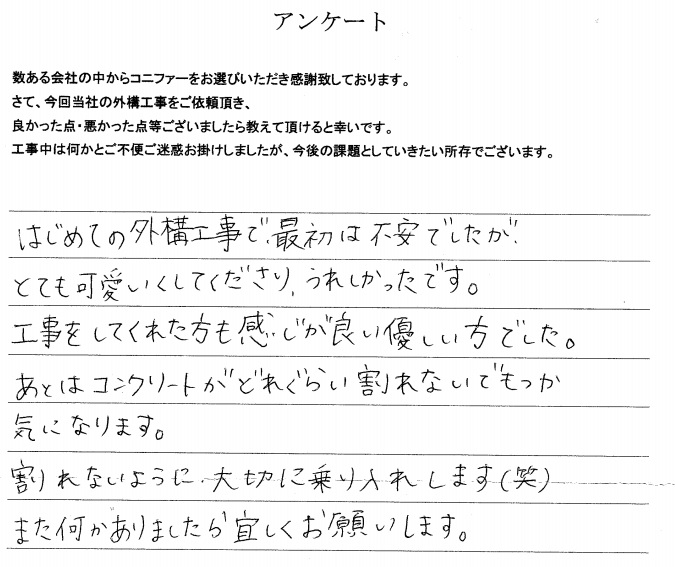 アンケート
数ある会社の中からコニファーをお選びいただき感謝致しております。
さて、今回当社の外構工事をご依頼頂き、
良かった点・悪かった点等ございましたら教えて頂けると幸いです。
工事中は何かとご不便ご迷惑お掛けしましたが、今後の課題としていきたい所存でございます。
はじめての外構工事で、最初は不安でしたが、
とても可愛いくしてくださり、うれしかったです。
工事をしてくれた方も感じが良い優しい方でした。
あとはコンクリートがどれぐらい割れないでもつか
気になります。
割れないように、大切に乗り入れします(笑)
また何かありましたら宜しくお願いします。